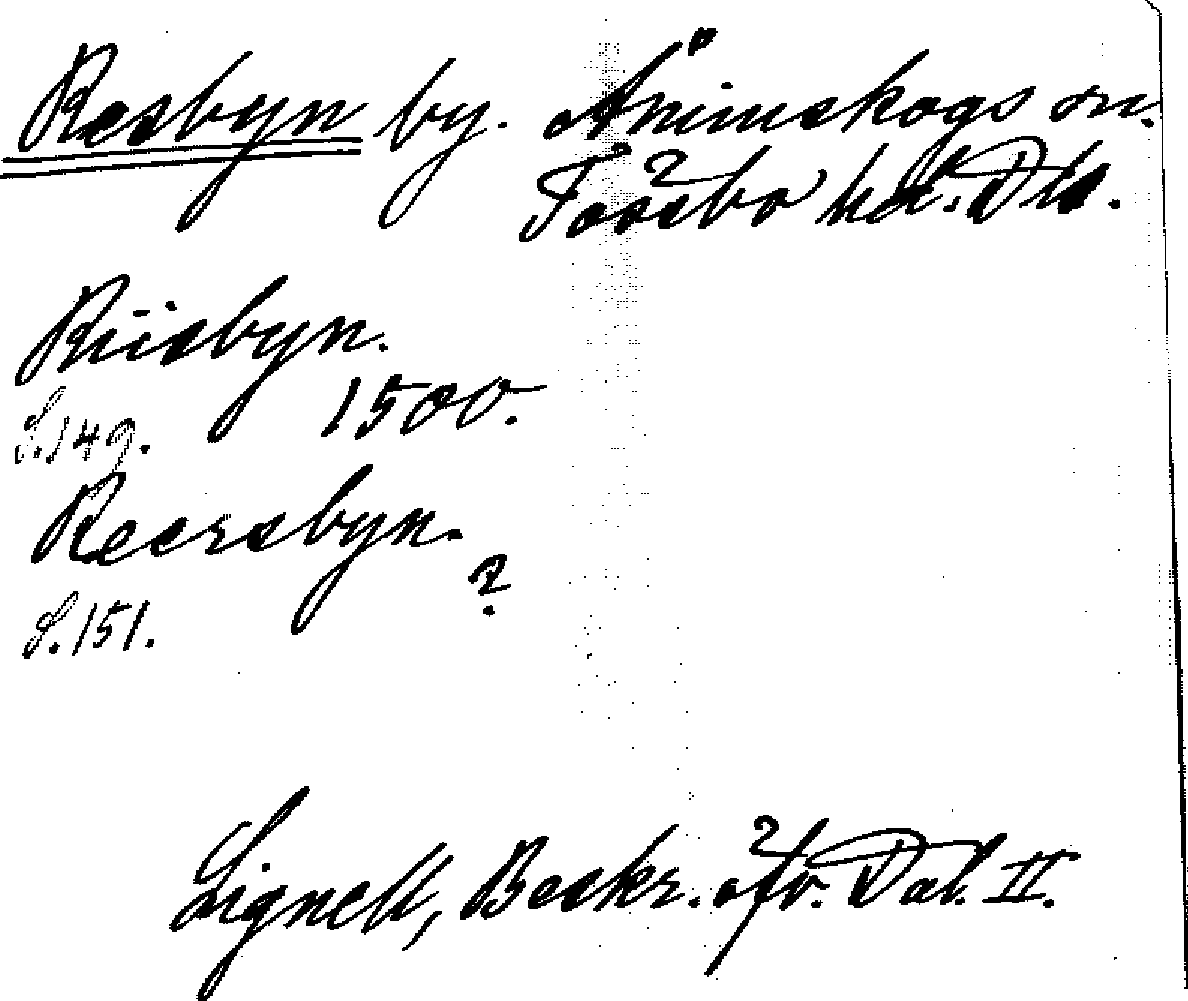 Resbyn by. Ånimskogs sn.
Tössbo hd. Dls.
Riisbyn.
S. 149. 1500.
Reersbyn.
?
S. 151.
Lignell, Beskr. öfv. Dal. II.